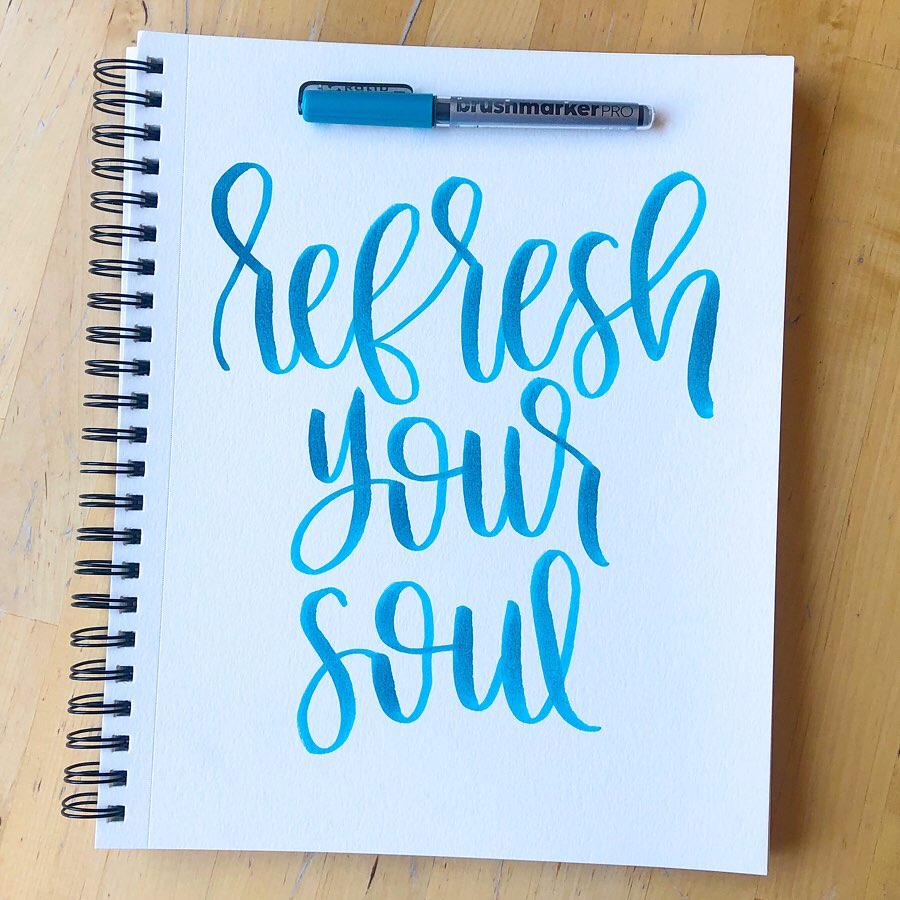 brushmarkerPRO
refresh
your
soul